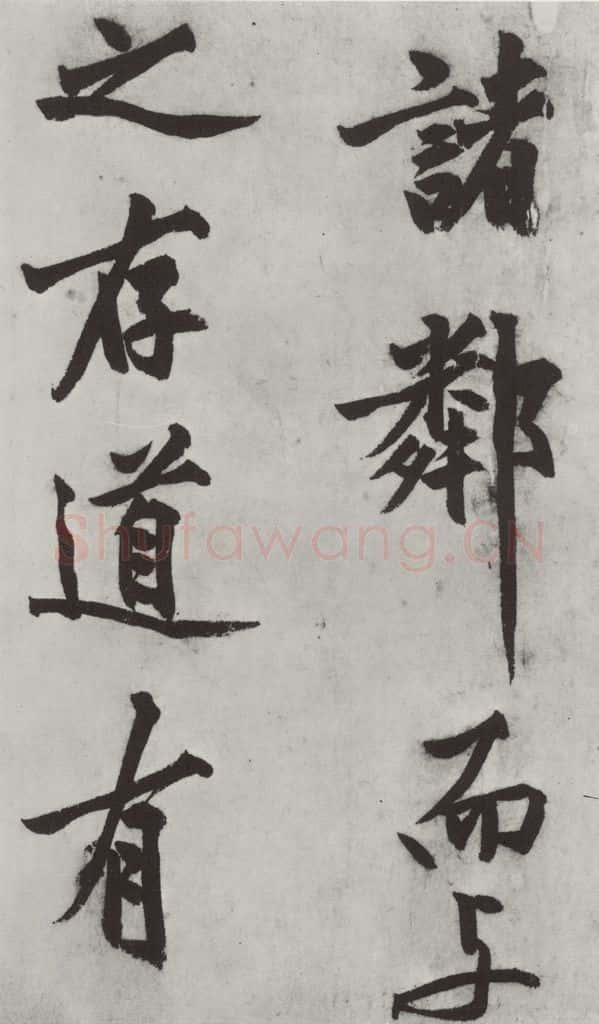 諸鄰而与
之存道有
Shufawang.CN